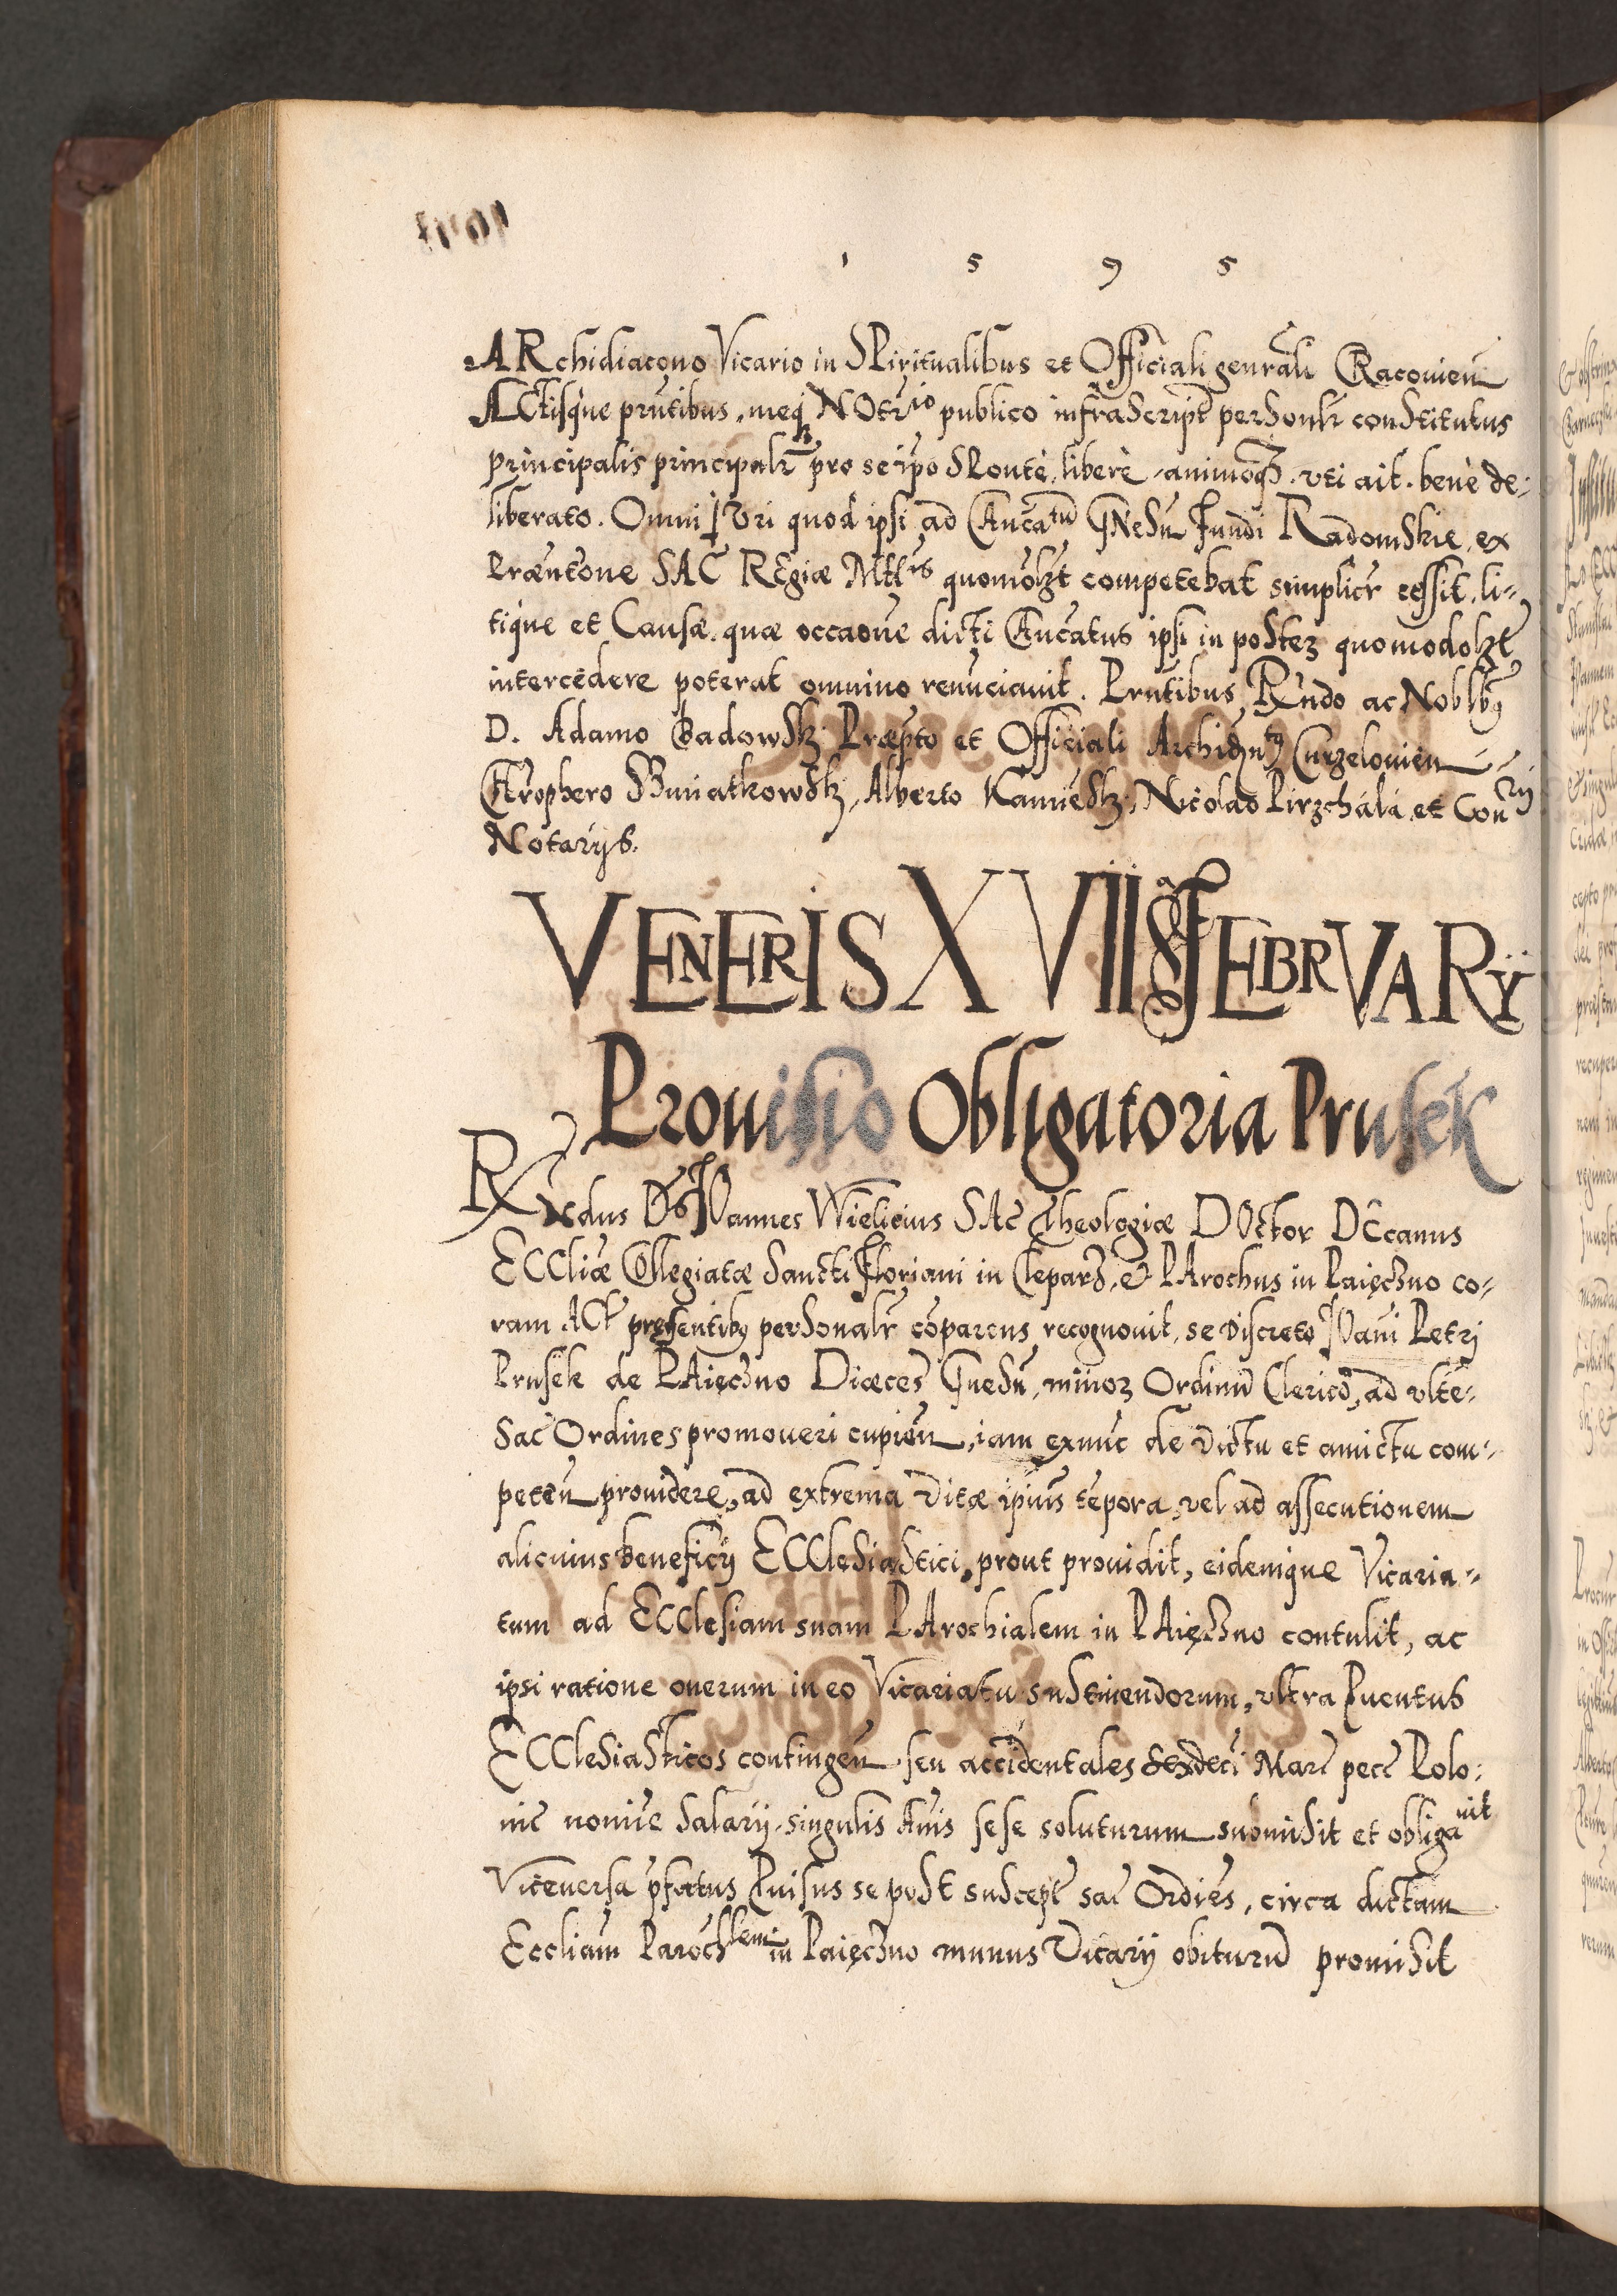 1 5 9 5
ARchidiacono Vicario in SPiritualibus et Officiali genrali CRacovien
ACtisque prntibus, meq3 NOtrio publico infrascript personlr constitutus
principalis principalr pro se ipo SPonte, libere, animoq3 . vti ait . bene de:
liberato. Omni Iuri quod ipsi ad Cancatum GNesn fundi Radomskie, ex
Præntone SAC REgiæ Mttis quomolzt competebat simplicr cessit, li-
tique et Causæ, quæ occaone dicti Cancatus ipsi in postez quomodolzt
intercedere poterat omnino renunciavit. Prntibus, Rndo ac Noblbq
D. Adamo Badowsk Præpto et Officiali Archidntq Curzelovien
CRrophero Swiatkowsk, Alberto Kamiensk, Nicolao Pirzchala, et Con
Notarijs.
VENERIS XVIIJ FEBRVARY
Provisio Obligatoria Prusek
RXndus Ds IOannes Wielicius SAC Theologiæ DOctor DEcanus
ECCliæ COllegiatæ Sancti Floriani in Cleparz, & PArochus in Paięczno co-
ram ACt presentibq personalr coparens recognovit, se discreto IOanni Petri
Prusek de PAięczno Diœces Gnesn, minoz Ordinu Clerico, ad vlte-
Sac Ordines promoveri cupien, iam exnunc de victu et amictu com-
peten providere, ad extrema vitæ ipius tepora, vel ad assecutionem
alicuius beneficij ECClesiastici, prout providit, eidemque Vicaria-
tum ad ECClesiam suam PArochialem in PAięczno contulit, ac
ipsi ratione onerum in eo Vicariatu sustinendorum, vltra Pventus
ECClesiasticos contingen seu accidentales sexdeci Marc pecc Polo:
nic nomine Salarij, singulis Anis sese soluturum submisit et obligavit
Viceversa pfatus Pvisus se post suscept sac Ordies, circa dictam
Eccliam Parochlem in Paięczno munus Vicarij obituru promisit